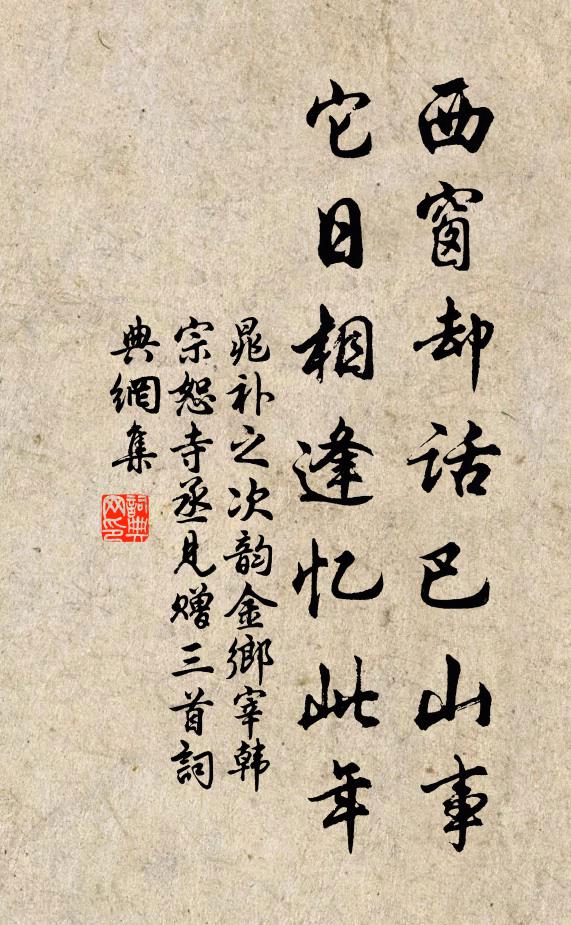 西窗却话巴山事
它日相逢忆此年
晁补之次韵金鄉宰韩
宗恕寺丞见赠三首詞
典網集
詞典网印